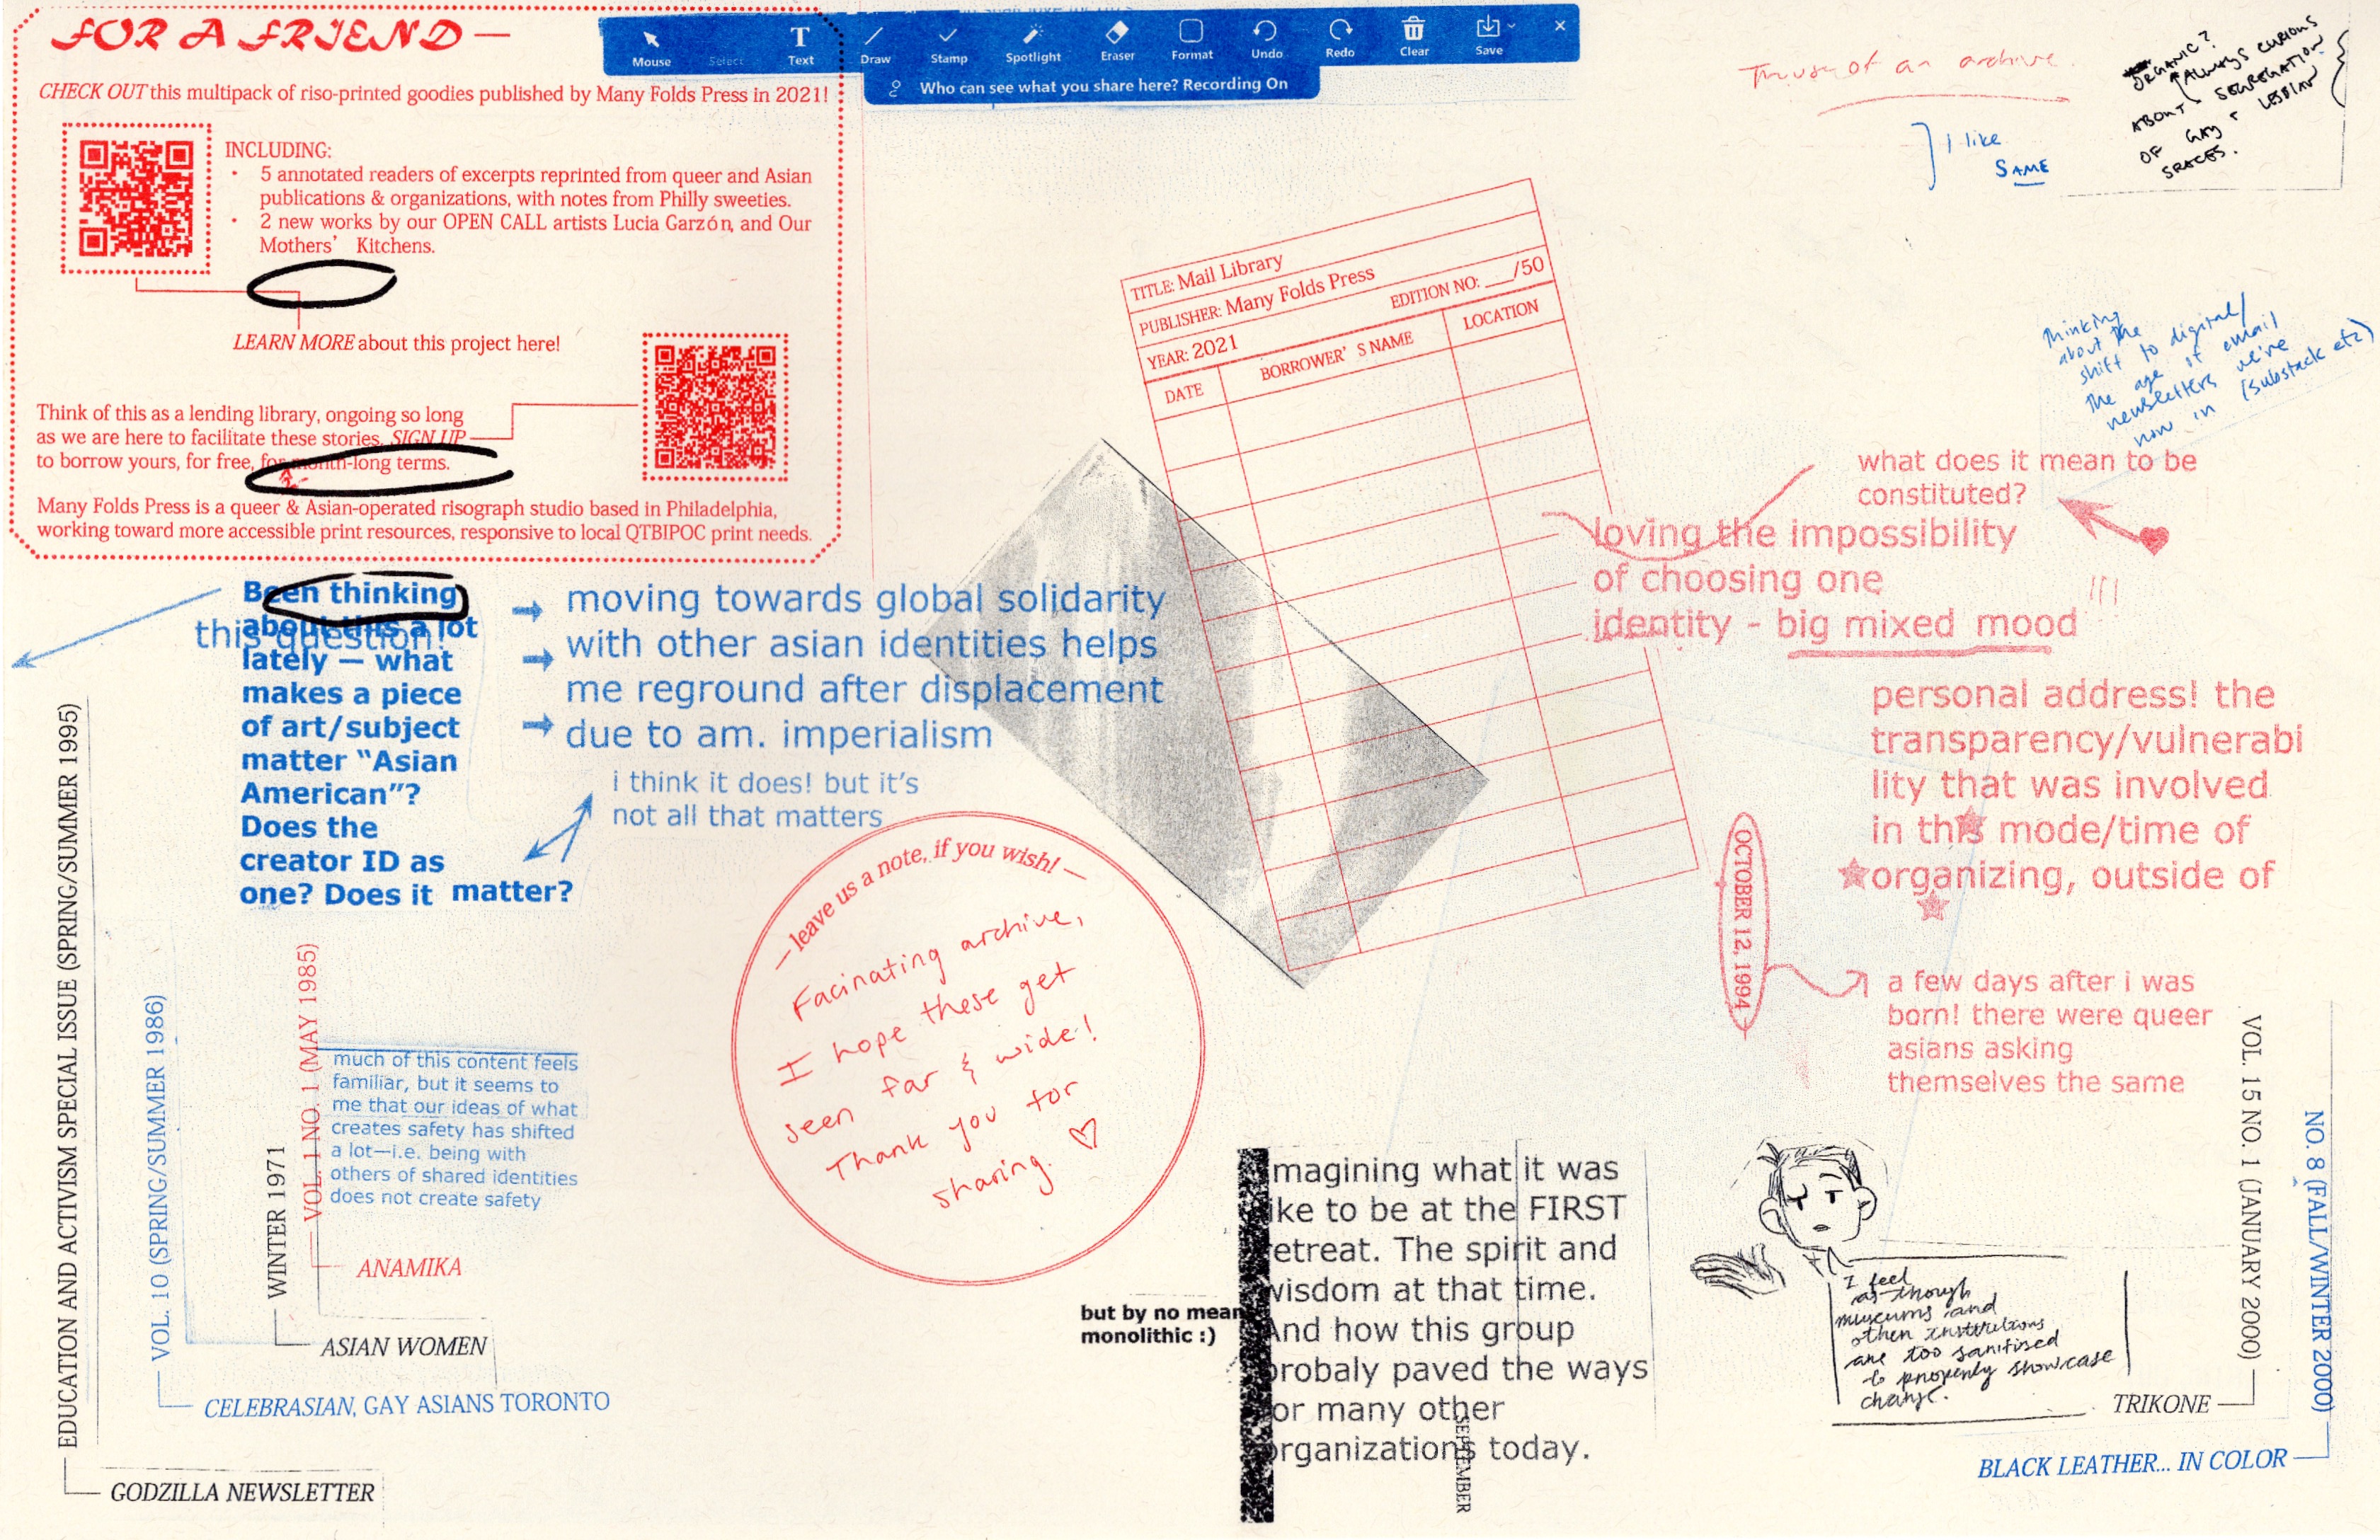 FOR A FRIEND —
CHECK OUT this multipack of riso-printed goodies published by Many Folds Press in 2021!
INCLUDING:
• 5 annotated readers of excerpts reprinted from queer and Asian
publications & organizations, with notes from Philly sweeties.
• 2 new works by our OPEN CALL artists Lucia Garzón, and Our
Mothers' Kitchens.
LEARN MORE about this project here!
Think of this as a lending library, ongoing so long
as we are here to facilitate these stories. SIGN UP
to borrow yours, for free, for month-long terms.
Many Folds Press is a queer & Asian-operated risograph studio based in Philadelphia,
working toward more accessible print resources, responsive to local QTBIPOC print needs.
Mouse
Select
Text
Draw
Stamp
Spotlight
Eraser
Format
Undo
Redo
Clear
Save
Who can see what you share here? Recording On
of an archive.
I like
SAME
ORGANIC?
ALWAYS CURIOUS
ABOUT SEGREGATION
OF GAY & LESBIAN
SPACES.
TITLE: Mail Library
PUBLISHER: Many Folds Press
EDITION NO: ___/50
YEAR: 2021
DATE
BORROWER' S NAME
LOCATION
Thinking
about the
shift to digital/
the age of email
newsletters we're
now in (substack etc)
what does it mean to be
constituted?
loving the impossibility
of choosing one
identity - big mixed mood
personal address! the
transparency/vulnerabi
lity that was involved
in this mode/time of
organizing, outside of
OCTOBER 12, 1994
a few days after i was
born! there were queer
asians asking
themselves the same
this question!
Been thinking
about this a lot
lately — what
makes a piece
of art/subject
matter “Asian
American”?
Does the
creator ID as
one? Does it matter?
moving towards global solidarity
with other asian identities helps
me reground after displacement
due to am. imperialism
i think it does! but it's
not all that matters
— leave us a note, if you wish! —
Facinating archive,
I hope these get
seen far & wide!
Thank you for
sharing. ♡
much of this content feels
familiar, but it seems to
me that our ideas of what
creates safety has shifted
a lot—i.e. being with
others of shared identities
does not create safety
EDUCATION AND ACTIVISM SPECIAL ISSUE (SPRING/SUMMER 1995)
GODZILLA NEWSLETTER
VOL. 10 (SPRING/SUMMER 1986)
CELEBRASIAN, GAY ASIANS TORONTO
WINTER 1971
ASIAN WOMEN
VOL. 1 NO. 1 (MAY 1985)
ANAMIKA
but by no mean
monolithic :)
magining what it was
ike to be at the FIRST
etreat. The spirit and
wisdom at that time.
And how this group
probaly paved the ways
or many other
organizations today.
SEPTEMBER
I feel
as though
museums and
other institutions
are too sanitized
to properly showcase
change.
VOL. 15 NO. 1 (JANUARY 2000)
TRIKONE
NO. 8 (FALL/WINTER 2000)
BLACK LEATHER... IN COLOR